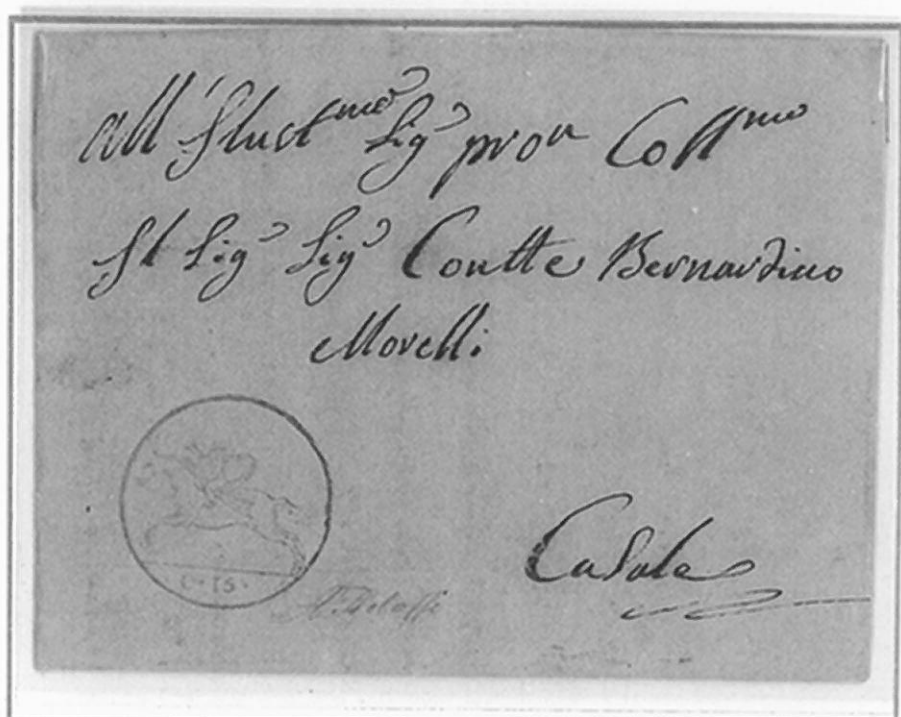 All' Illust.mo Sig.r pron Coll.mo
Il Sig.r Sig.r Contte Bernardino
Morelli
C. 15.
Casale